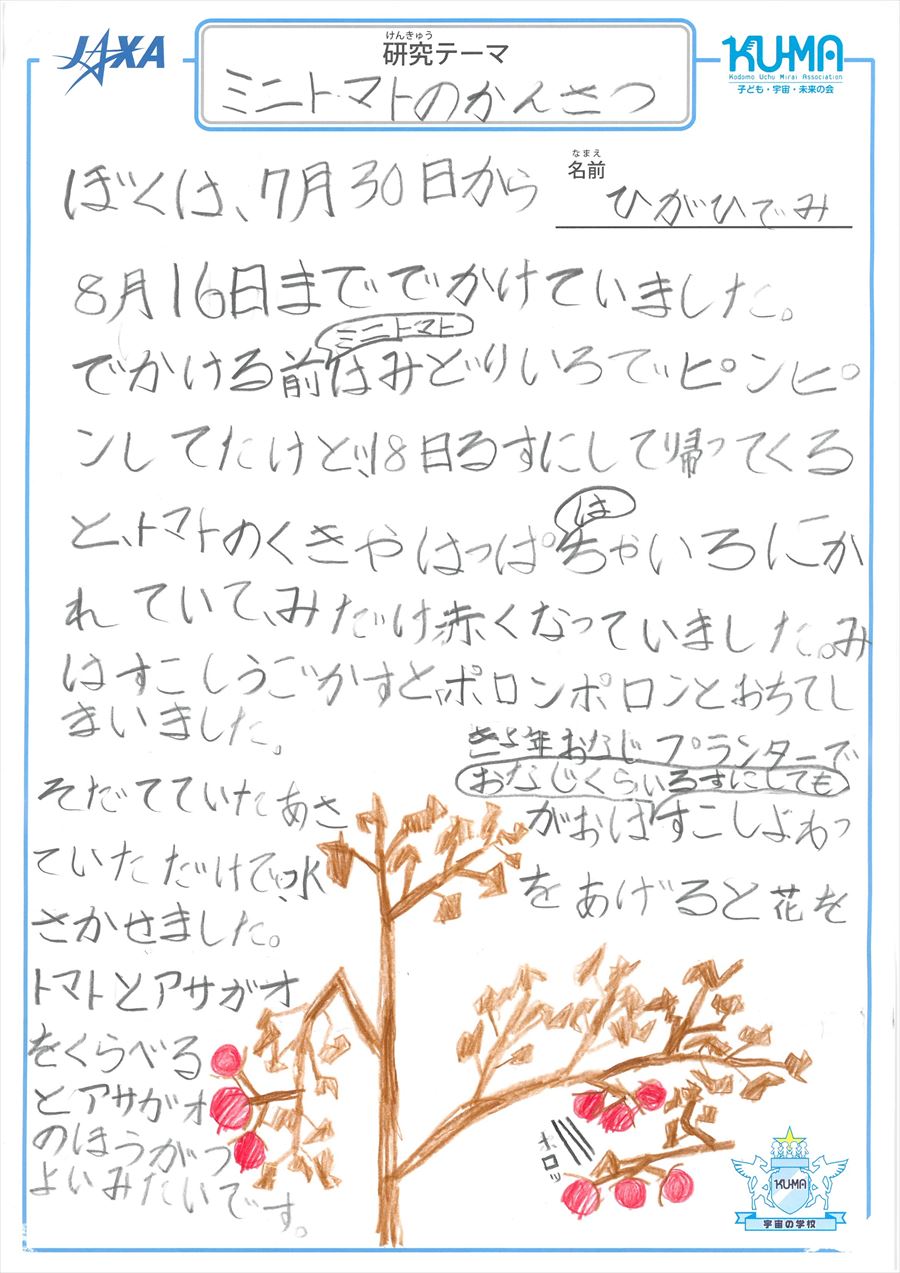 JAXA
けんきゅう
研究テーマ
ミニトマトのかんさつ
KU-MA
Kodomo Uchu Mirai Association
子ども・宇宙・未来の会
なまえ
名前
ひがひでみ
ぼくは、7月30日から
8月16日まででかけていました。
ミニトマト
でかける前はみどりいろでピンピ
ンしてたけど、18日るすにして帰ってくる
は
と、トマトのくきやはっぱちゃいろにか
れていて、みだけ赤くなっていました。み
はすこしうごかすと、ポロンポロンとおちてし
まいました。
きょ年おなじプランターで
おなじくらいるすにしても
そだてていたあさがおはすこしよわっ
ていただけで、水をあげると花を
さかせました。
トマトとアサガオ
をくらべる
とアサガオ
のほうがつ
よいみたいです。
ポロッ
KU-MA
宇宙の学校